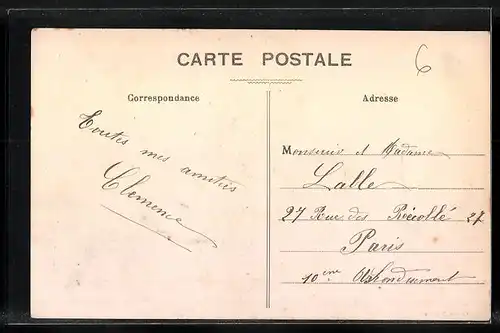 CARTE POSTALE
6
Correspondance
Toutes mes amitiés
Clemence
Adresse
Monsieur et Madame
Lalle
27 Rue des Récollé 27
Paris
10ème